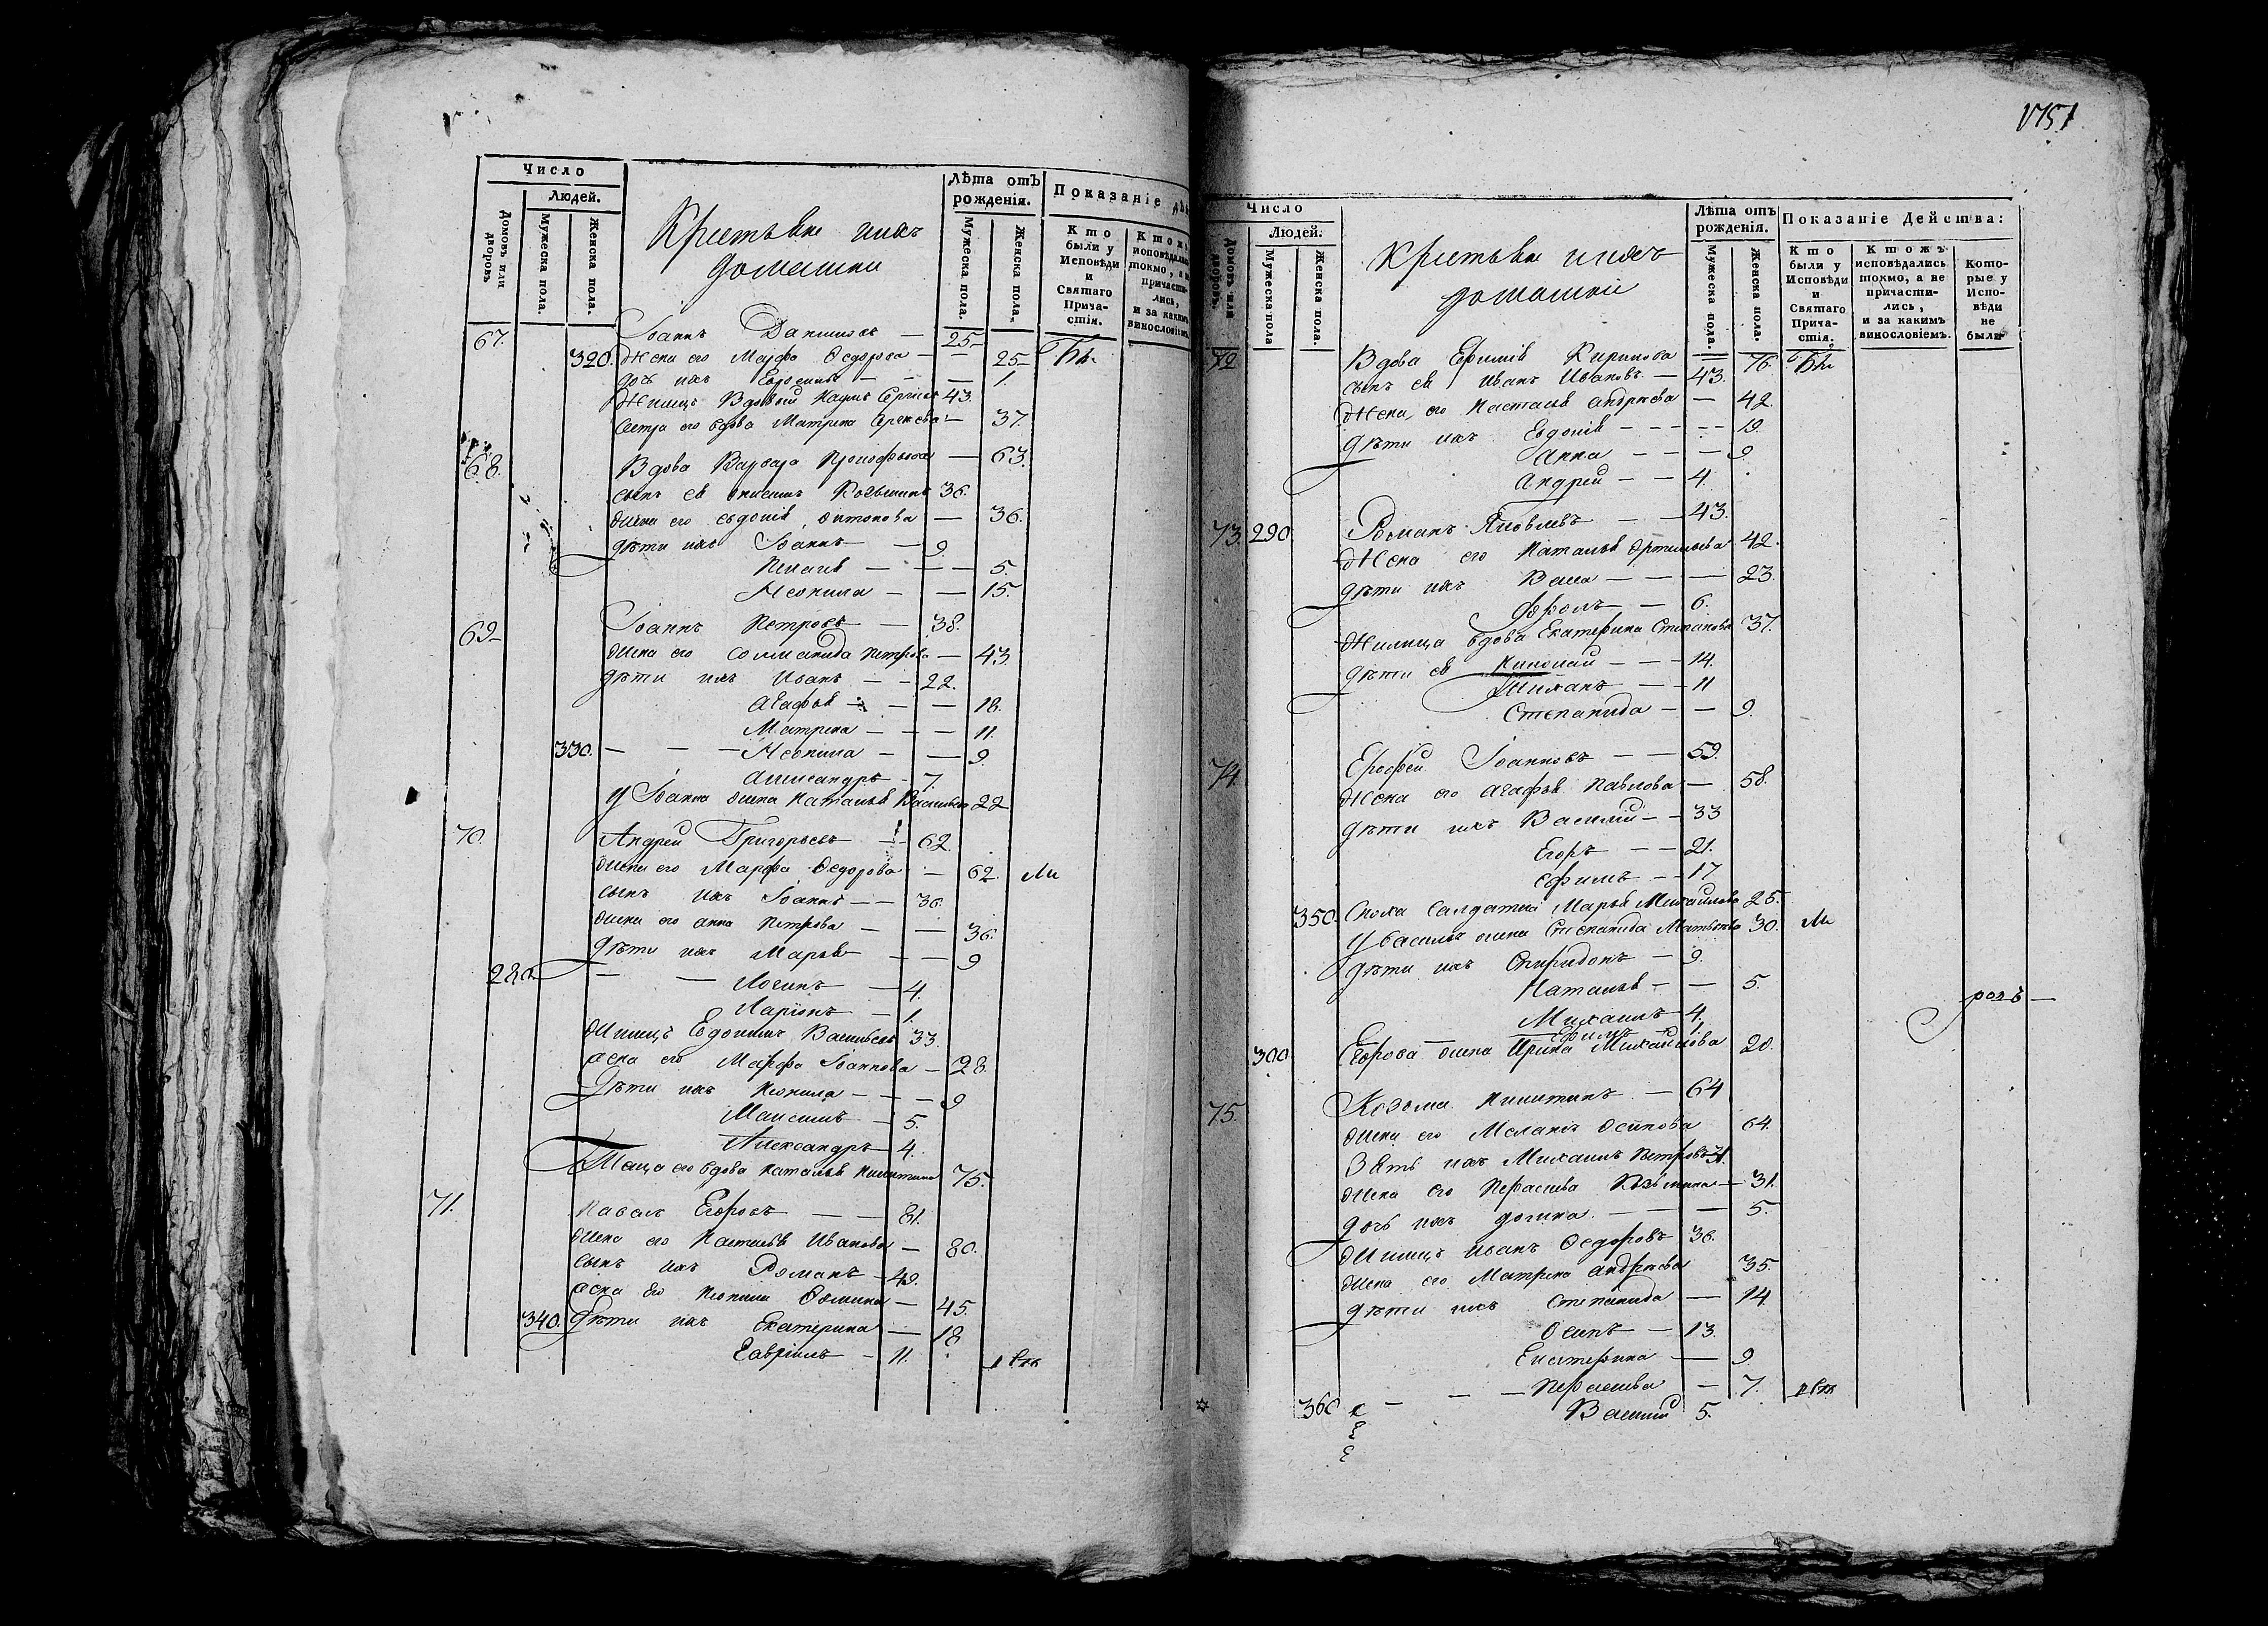 Число
Людей.
Домовъ или дворовъ
Мужеска пола.
Женска пола.
Крестьяне ихъ
домашни
Лѣта отъ рожденія.
Мужеска пола.
Женска пола.
Показаніе дѣ
Кто были у Исповѣди и Святаго Причастія.
67. Іоаннъ Даниловъ — 25
320. Жена его Марфа Ѳедорова — 25 Бы
дочь ихъ — 1.
Жилецъ Вдовый Наумъ 43.
Сестра его вдова Матрена Сергѣева — 37.
68. Вдова Варвара Прокофьева — 63.
сынъ ея Козьминъ 36.
жена его Евдокія Антонова — 36.
дѣти ихъ Іоаннъ — 9.
— 5.
Неонила — 15.
69. Іоаннъ Петровъ — 38.
жена его Соломанида Петрова — 43.
дѣти ихъ Иванъ — 22.
Агафья — 18.
Матрена — 11.
330. — Неонила — 9.
Александръ — 7.
У Іоанна жена Наталья Васильева 22
70. Андрей Григорьевъ — 62.
жена его Марфа Ѳедорова — 62. ли
сынъ ихъ Іоаннъ — 36.
жена его Анна Петрова — 36.
дѣти ихъ Марья — 9
280. — Логинъ — 4.
Ларіонъ — 1.
Жилецъ Евдокимъ Васильевъ 33.
жена его Марфа Іоаннова — 28.
Дѣти ихъ Неонила — 9
Максимъ — 5.
Александръ 4.
Теща его вдова Наталья Никитина 75.
71. Павелъ Егоровъ — 81.
жена его Настасья Иванова — 80.
сынъ ихъ Романъ — 49.
жена его Неонила Ѳомина — 45
340. Дѣти ихъ Екатерина — 18
Гавріилъ — 11.
1751
Число
Людей.
Домовъ или дворовъ.
Мужеска пола
Женска пола.
Крестьяне ихъ
домашніи
Лѣта отъ рожденія.
Мужеска пола.
Женска пола.
Показаніе Действа:
Кто были у Исповѣди и Святаго Причастія.
Ктожъ исповѣдались токмо, а не причастились, и за какимъ винословіемъ.
Которые у Исповѣди не были
72 Вдова Ефимія Кирилова — 76. Бы
сынъ ея Иванъ Ивановъ — 43.
Жена его Настасья Андреева — 42.
дѣти ихъ Евдокія — 19.
Анна — 9
Андрей — 4.
73. 290 Романъ Яковлевъ — 43.
Жена его Наталья Артемьева 42.
дѣти ихъ — 23.
Фролъ — 6.
Жилица вдова Екатерина Степанова 37.
дѣти ея Николай — 14.
— 11
Степанида — 9.
74. Ерофей Іоанновъ — 59.
Жена его Агафья Павлова — 58.
дѣти ихъ Василій — 33
Егоръ — 21.
Ефимъ — 17
350. Сноха Салдатка Марья Михайлова 25.
У Василья жена Степанида Матвѣева 30. ли
дѣти ихъ Спиридонъ — 9.
Наталья — 5.
Михаилъ 4.
Ефимъ 1.
300 Егорова жена Ирина Михайлова 20.
75. Козьма Никитинъ — 64
жена его Меланія Осипова 64.
Зять ихъ Михаилъ Петровъ 31.
жена его Параскева Козьмина — 31.
дочь ихъ — 5.
Жилецъ Иванъ Ѳедоровъ 36.
жена его Матрена Андреева 35.
дѣти ихъ Степанида — 14
Осипъ — 13.
Екатерина — 9.
360 — Параскева — 7.
Василій 5.